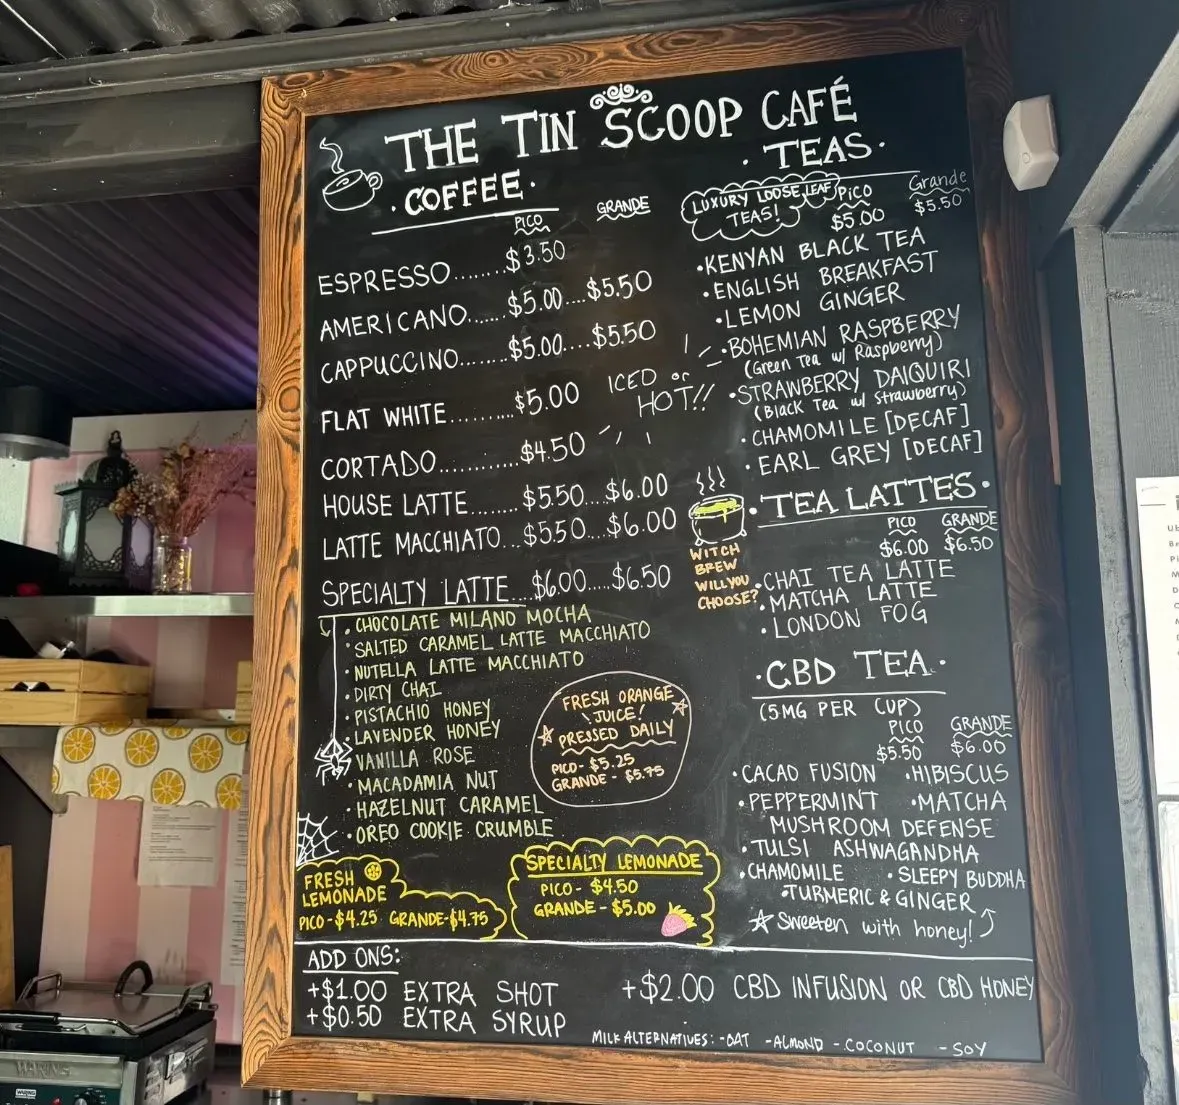 THE TIN SCOOP CAFÉ
· COFFEE ·
PICO GRANDE
ESPRESSO........$3.50
AMERICANO......$5.00....$5.50
CAPPUCCINO........$5.00....$5.50
FLAT WHITE..........$5.00
ICED or HOT!!
CORTADO............$4.50
HOUSE LATTE........$5.50...$6.00
LATTE MACCHIATO...$5.50...$6.00
SPECIALTY LATTE...$6.00.....$6.50
· CHOCOLATE MILANO MOCHA
· SALTED CARAMEL LATTE MACCHIATO
· NUTELLA LATTE MACCHIATO
· DIRTY CHAI
· PISTACHIO HONEY
· LAVENDER HONEY
VANILLA ROSE
· MACADAMIA NUT
· HAZELNUT CARAMEL
· OREO COOKIE CRUMBLE
FRESH ORANGE
JUICE!
PRESSED DAILY
PICO - $5.25
GRANDE - $5.75
FRESH
LEMONADE
PICO-$4.25 GRANDE-$4.75
SPECIALTY LEMONADE
PICO - $4.50
GRANDE - $5.00
· TEAS ·
LUXURY LOOSE LEAF
TEAS!
PICO Grande
$5.00 $5.50
· KENYAN BLACK TEA
· ENGLISH BREAKFAST
· LEMON GINGER
· BOHEMIAN RASPBERRY
(Green Tea w/ Raspberry)
· STRAWBERRY DAIQUIRI
(Black Tea w/ Strawberry)
· CHAMOMILE [DECAF]
· EARL GREY [DECAF]
· TEA LATTES ·
PICO GRANDE
$6.00 $6.50
WITCH
BREW
WILL YOU
CHOOSE?
· CHAI TEA LATTE
· MATCHA LATTE
· LONDON FOG
· CBD TEA ·
(5MG PER CUP)
PICO GRANDE
$5.50 $6.00
· CACAO FUSION · HIBISCUS
· PEPPERMINT · MATCHA
MUSHROOM DEFENSE
· TULSI ASHWAGANDHA
· CHAMOMILE · SLEEPY BUDDHA
· TURMERIC & GINGER
Sweeten with honey!
ADD ONS:
+$1.00 EXTRA SHOT
+$0.50 EXTRA SYRUP
+$2.00 CBD INFUSION OR CBD HONEY
MILK ALTERNATIVES: - OAT - ALMOND - COCONUT - SOY
WARING